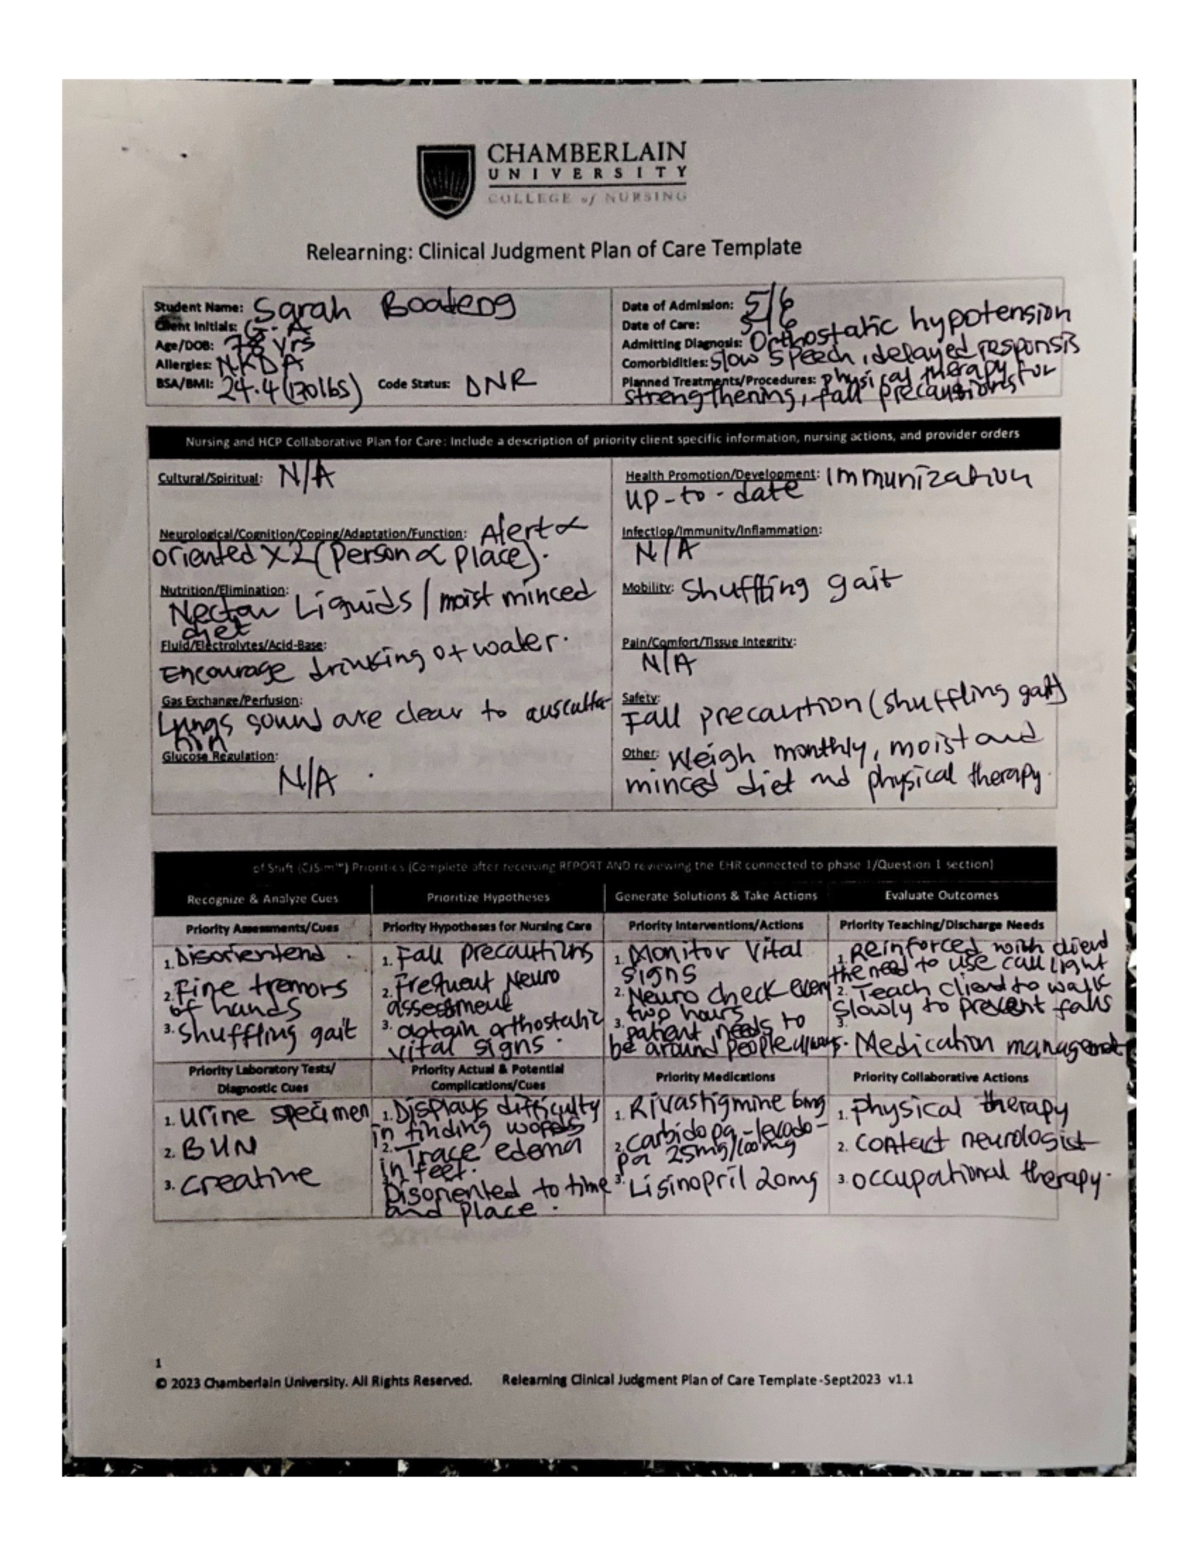 CHAMBERLAIN
UNIVERSITY
COLLEGE of NURSING
Relearning: Clinical Judgment Plan of Care Template
Student Name: Sarah Boateng
Client Initials: G. A
Age/DOB: 78 yrs
Allergies: NKDA
BSA/BMI: 24.4 (170lbs) Code Status: DNR
Date of Admission: 5/6
Date of Care: 5/6
Admitting Diagnosis: Orthostatic hypotension
Comorbidities: Slow speech, delayed responsis
Planned Treatments/Procedures: physical therapy for
strengthening, fall precautions
Nursing and HCP Collaborative Plan for Care: Include a description of priority client specific information, nursing actions, and provider orders
Cultural/Spiritual: N/A
Neurological/Cognition/Coping/Adaptation/Function: Alert &
oriented X2 (Person & place).
Nutrition/Elimination:
Nectar Liquids / moist minced
diet
Fluid/Electrolytes/Acid-Base:
Encourage drinking of water.
Gas Exchange/Perfusion:
Lungs sound are clear to ausculta
Glucose Regulation:
N/A
Health Promotion/Development: Immunization
up-to-date
Infection/Immunity/Inflammation:
N/A
Mobility: Shuffling gait
Pain/Comfort/Tissue Integrity:
N/A
Safety:
Fall precaution (shuffling gait)
Other: Weigh monthly, moist and
minced diet and physical therapy.
of Shift (CJSim™) Priorities (Complete after receiving REPORT AND reviewing the EHR connected to phase 1/Question 1 section)
Recognize & Analyze Cues
Priority Assessments/Cues
1. Disorientend
2. Fine tremors
of hands
3. Shuffling gait
Prioritize Hypotheses
Priority Hypotheses for Nursing Care
1. Fall precautions
2. Frequent Neuro
assessment
3. obtain orthostatic
vital signs.
Generate Solutions & Take Actions
Priority Interventions/Actions
1. Monitor Vital
signs
2. Neuro check every
two hours
3. patient needs to
be around people always.
Evaluate Outcomes
Priority Teaching/Discharge Needs
1. Reinforced with client
the need to use call light
2. Teach client to walk
slowly to prevent falls
3. Medication management
Priority Laboratory Tests/
Diagnostic Cues
1. Urine specimen
2. BUN
3. creatine
Priority Actual & Potential
Complications/Cues
1. Displays difficulty
in finding words
2. Trace edema
in feet.
Disoriented to time
and place.
Priority Medications
1. Rivastigmine 6mg
2. Carbidopa-levodo-
pa 25mg/100mg
3. Lisinopril 20mg
Priority Collaborative Actions
1. physical therapy
2. contact neurologist
3. occupational therapy.
1
© 2023 Chamberlain University. All Rights Reserved. Relearning Clinical Judgment Plan of Care Template-Sept2023 v1.1